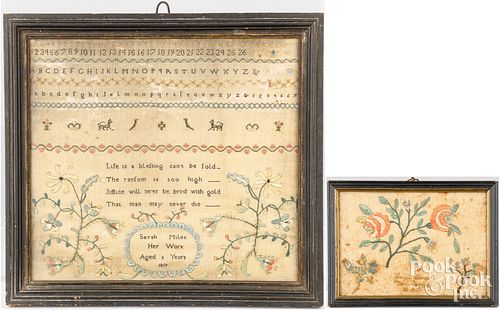 12345678910 11 12 13 14 15 16 17 18 19 20 21 22 23 24 25 26
ABCDEFGHIJKLMNOPQRSTUVWXYZ&
abcdefghijklmnopqrsfstuvwxyz&
Life is a blefsing can't be fold
The ranfom is too high
Juftice will ne'er be bred with gold
That man may never die
Sarah Miles
Her Work
Aged 8 Years
Pook &
Pook
Inc.